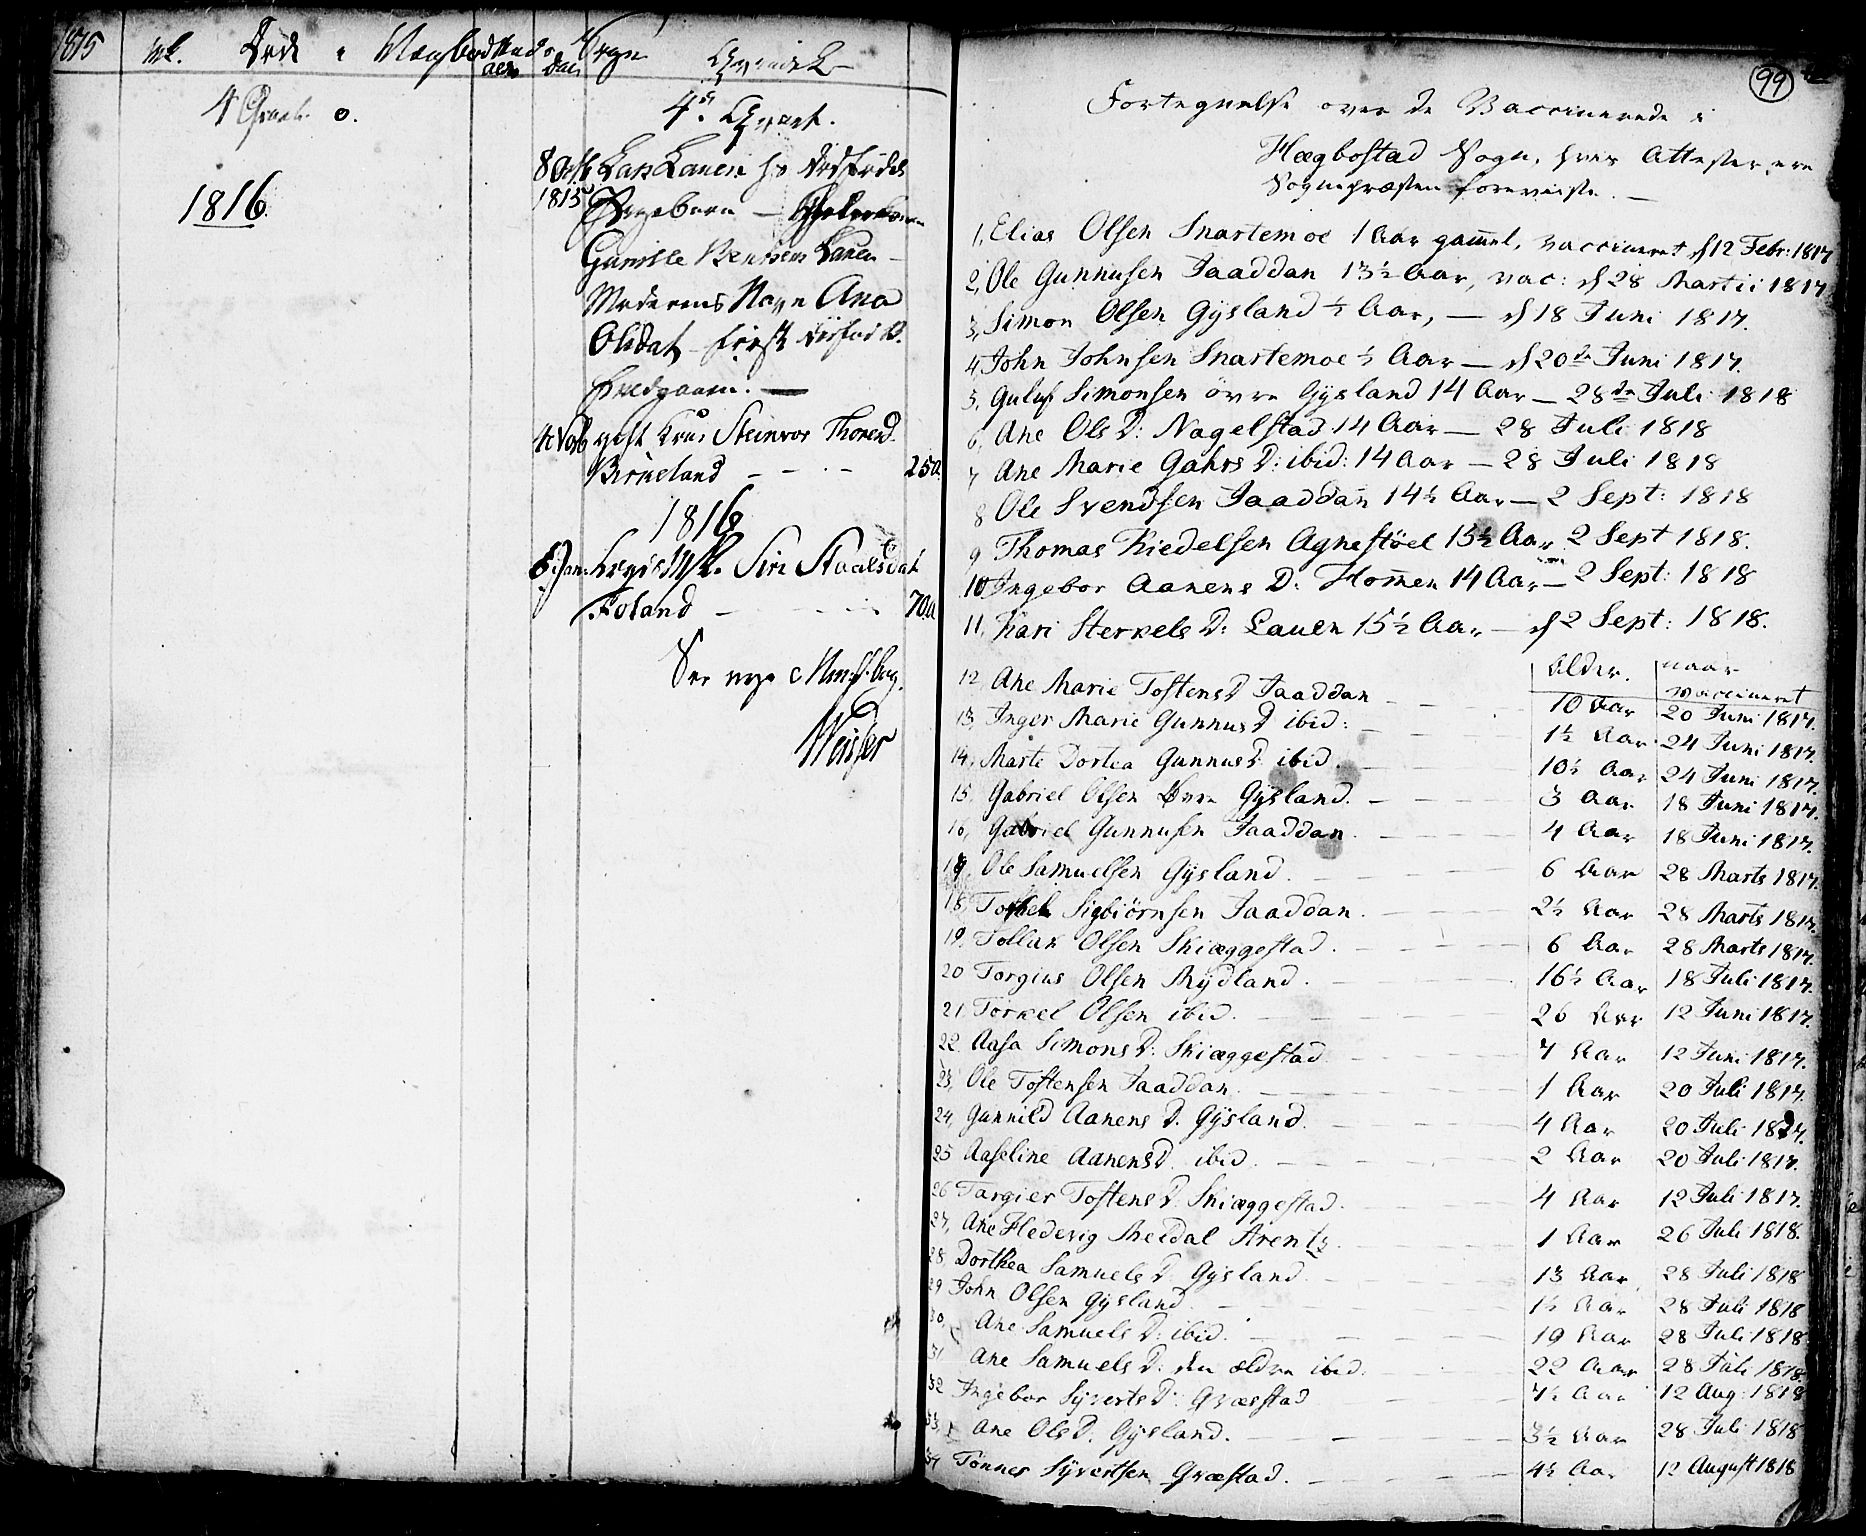 1815
Døde i
aar
dai
4 Qvart. 0.
1816.
4de Qvart.
8 Oct
1815
Lars Lauen
Ingeborn —
Gunille Lauen
Moderens Navn Ana
Olsdat, først
4 Nov Steinvor Thored.
Birkeland — 250.
1816
6 Jan: Siri Staalsdat
Foland — 70a
See nye
99
Fortegnelse over de Vaccinerede i
Hægbostad Sogn, hvis Attester ere
Sognepræsten foreviiste. —
1, Elias Olsen Snartemoe 1 Aar gam̄el, vaccineret d 12 Febr: 1817
2, Ole Gunnusen Jaaddan 13½ Aar, vac: d 28 Martii 1817
3, Simon Olsen Gysland ½ Aar, — d 18 Juni 1817.
4, John Johnsen Snartemoe ½ Aar — d 20de Juni 1817.
5, Guluf Simonsen övre Gysland 14 Aar — 28de Juli 1818
6 Ane Ols D: Nagelstad 14 Aar — 28 Juli 1818
7 Ane Marie Gahrs D: ibid: 14 Aar — 28 Juli 1818
8 Ole Svendsen Jaaddan 14½ Aar — 2 Sept: 1818
9 Thomas Kiedelsen Agnestöel 15½ Aar 2 Sept 1818.
10 Ingebor Aanens D: Hom̄en 14 Aar — 2 Sept: 1818
11, Kari Sterkels D: Lauen 15½ Aar — d 2 Sept: 1818.
Alder. naar vaccineret
12, Ane Marie Tostens D Jaaddan — 10 Aar 20 Juni 1817.
13, Inger Marie Gunnus D ibid: — 1½ Aar 24 Juni 1817.
14, Marte Dortea Gunnus D: ibid. — 10½ Aar 24 Juni 1817.
15, Gabriel Olsen Øvre Gysland. — 3 Aar 18 Juni 1817.
16, Gabriel Gunnusen Jaaddan. — 4 Aar 18 Juni 1817.
17, Ole Samuelsen Gysland. — 6 Aar 28 Marts 1817.
18, Torkel Sigbiörnsen Jaaddan. — 2½ Aar 28 Marts 1817.
19, Tollak Olsen Skiæggestad. — 6 Aar 28 Marts 1817.
20 Torgius Olsen Mydland. — 16½ Aar 18 Juli 1817.
21, Torkel Olsen ibid. — 26 Aar 12 Juni 1817.
22, Aasa Simons D: Skiæggestad — 7 Aar 12 Juni 1817.
23, Ole Tostensen Jaaddan. — 1 Aar 20 Juli 1817.
24, Gunnild Aanens D. Gysland. — 4 Aar 20 Juli 1817.
25 Aaseline Aanens D. ibid. — 2 Aar 20 Juli 1817.
26 Targier Tostens D. Skiæggestad. — 4 Aar 12 Juli 1817.
27, Ane Hedevig Meidal Arentz. — 1 Aar 26 Juli 1818.
28, Dorthea Samuels D: Gysland. — 13 Aar 28 Juli 1818
29 John Olsen Gysland — 1½ Aar 28 Juli 1818
30, Ane Samuels D: ibid. — 19 Aar 28 Juli 1818
31 Ane Samuels D: den ældre ibid. — 22 Aar 28 Juli 1818
32 Ingebor Syverts D: Græstad — 7½ Aar 12 Aug: 1818
33, Ane Ols D: Gysland. — 3½ Aar 28 Juli 1818
34 Tönnes Syvertsen Græstad. — 4½ Aar 12 August 1818